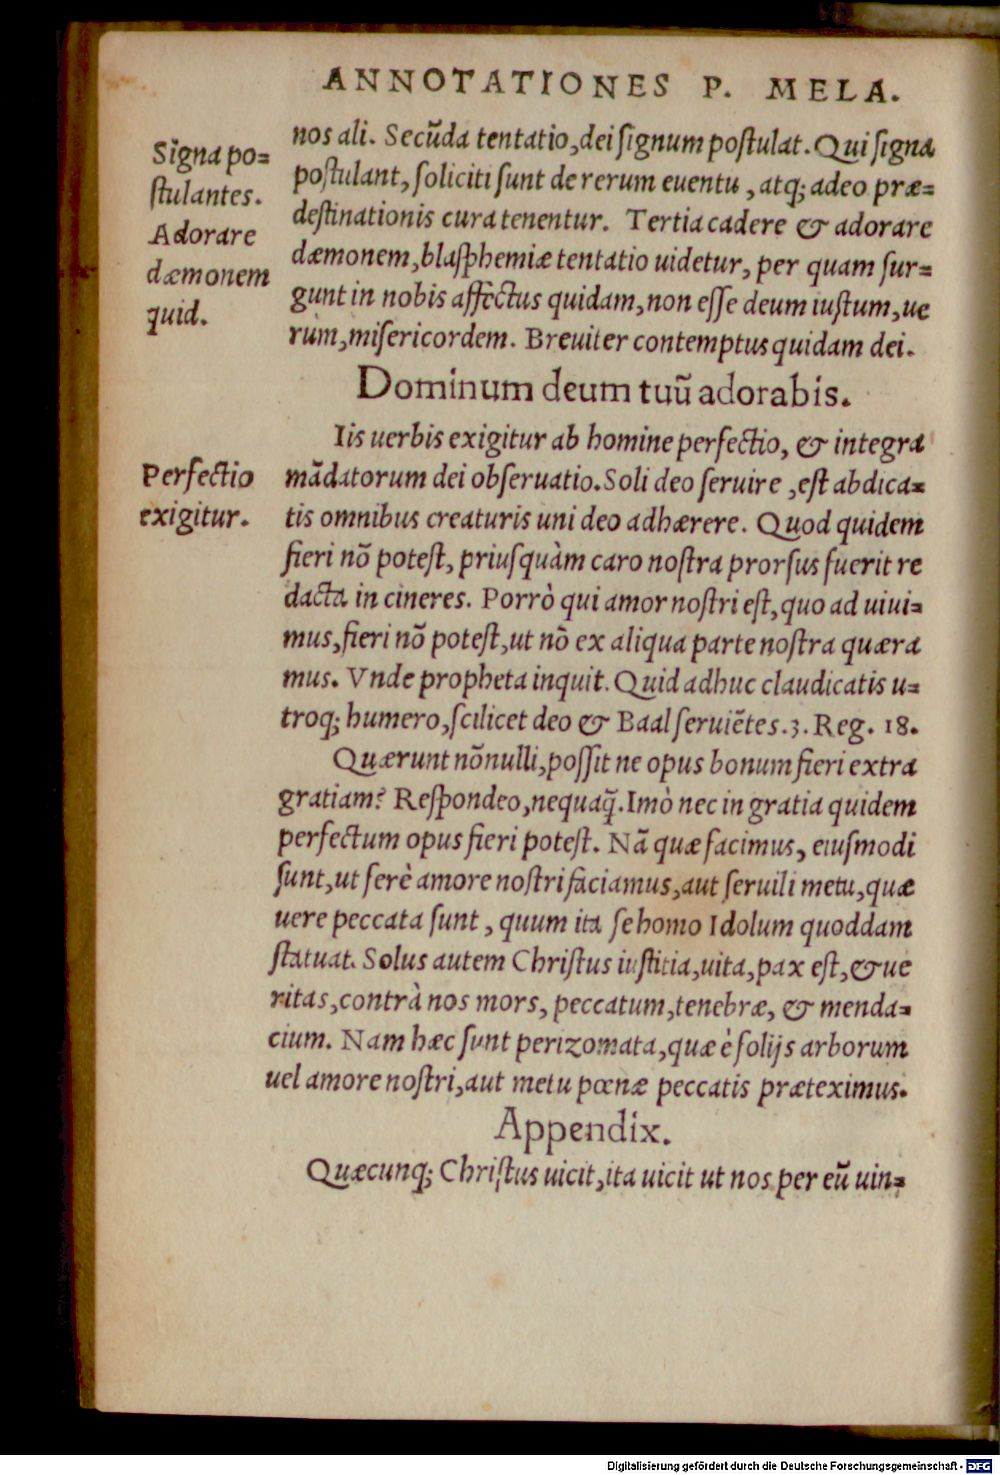 ANNOTATIONES P. MELA.
nos ali. Secūda tentatio, dei signum postulat. Qui signa
postulant, soliciti sunt de rerum euentu, atq; adeo præ=
destinationis cura tenentur. Tertia cadere & adorare
dæmonem, blasphemiæ tentatio uidetur, per quam sur=
gunt in nobis affectus quidam, non esse deum iustum, ue
rum, misericordem. Breuiter contemptus quidam dei.
Signa po=
stulantes.
Adorare
dæmonem
quid.
Dominum deum tuū adorabis.
Iis uerbis exigitur ab homine perfectio, & integra
mādatorum dei obseruatio. Soli deo seruire, est abdica=
tis omnibus creaturis uni deo adhærere. Quod quidem
fieri nō potest, priusquàm caro nostra prorsus fuerit re
dacta in cineres. Porrò qui amor nostri est, quo ad uiui=
mus, fieri nō potest, ut nō ex aliqua parte nostra quæra
mus. Vnde propheta inquit. Quid adhuc claudicatis u=
troq; humero, scilicet deo & Baal seruiētes. 3. Reg. 18.
Perfectio
exigitur.
Quærunt nōnulli, possit ne opus bonum fieri extra
gratiam? Respondeo, nequaq̃. Imò nec in gratia quidem
perfectum opus fieri potest. Nā quæ facimus, eiusmodi
sunt, ut ferè amore nostri faciamus, aut seruili metu, quæ
uere peccata sunt, quum ita se homo Idolum quoddam
statuat. Solus autem Christus iustitia, uita, pax est, & ue
ritas, contrà nos mors, peccatum, tenebræ, & menda=
cium. Nam hæc sunt perizomata, quæ è folijs arborum
uel amore nostri, aut metu pœnæ peccatis præteximus.
Appendix.
Quæcunq; Christus uicit, ita uicit ut nos per eū uin=
Digitalisierung gefördert durch die Deutsche Forschungsgemeinschaft - DFG